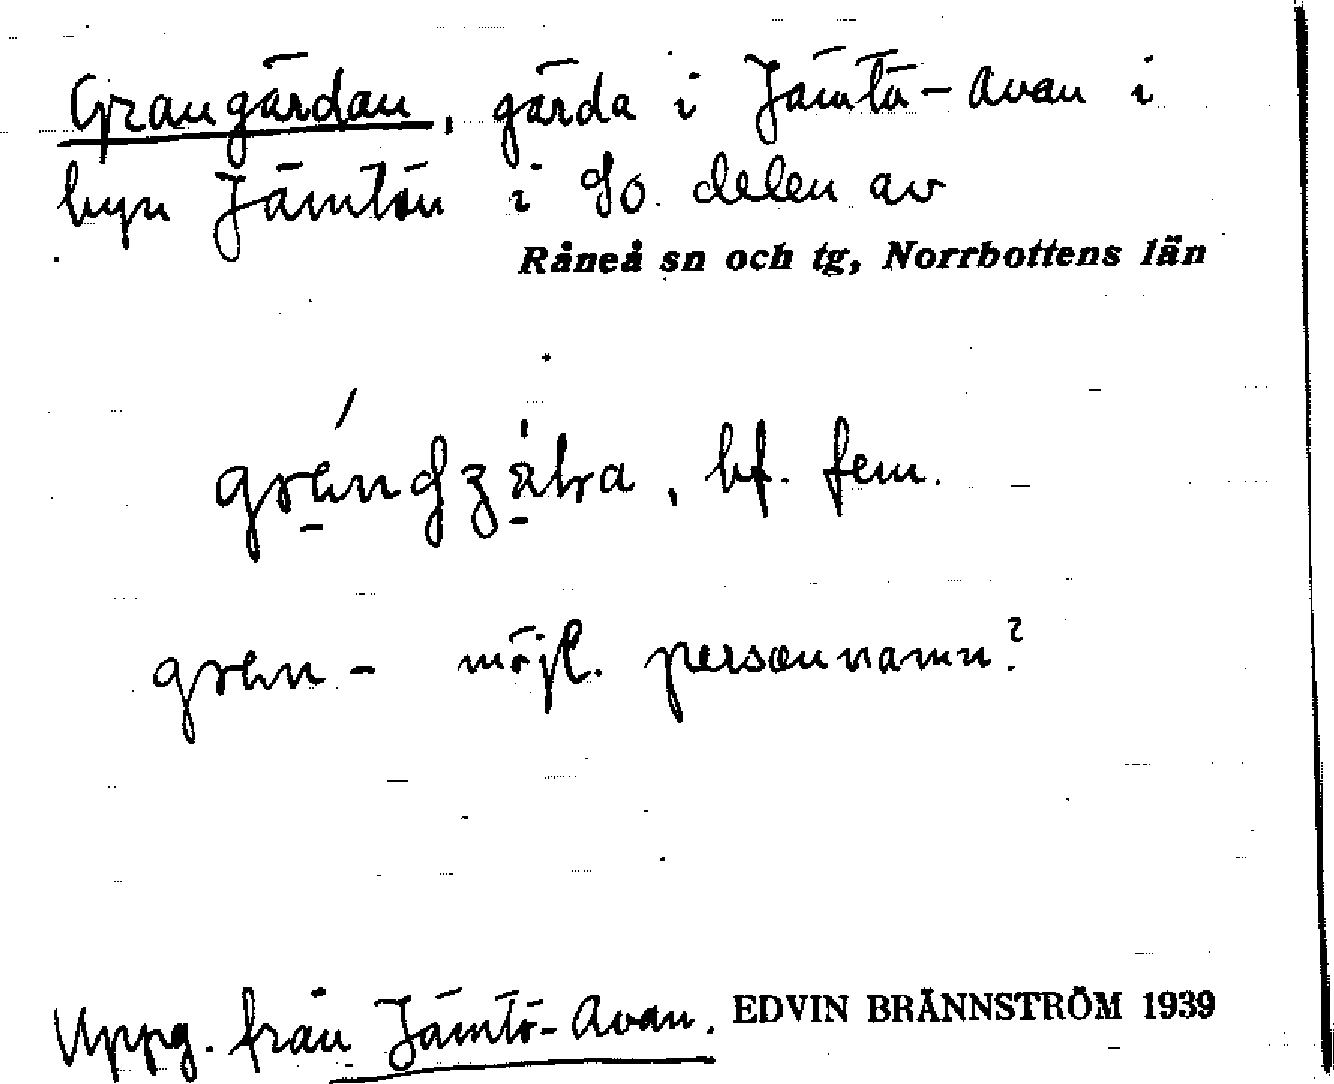 Grangärdan, gärda i Jämtö-Avan i
byn Jämtön i So. delen av
Råneå sn och tg, Norrbottens län
bf. fem.
gren- möjl. personnamn?
Uppg. från Jämtö-Avan. EDVIN BRÄNNSTRÖM 1939